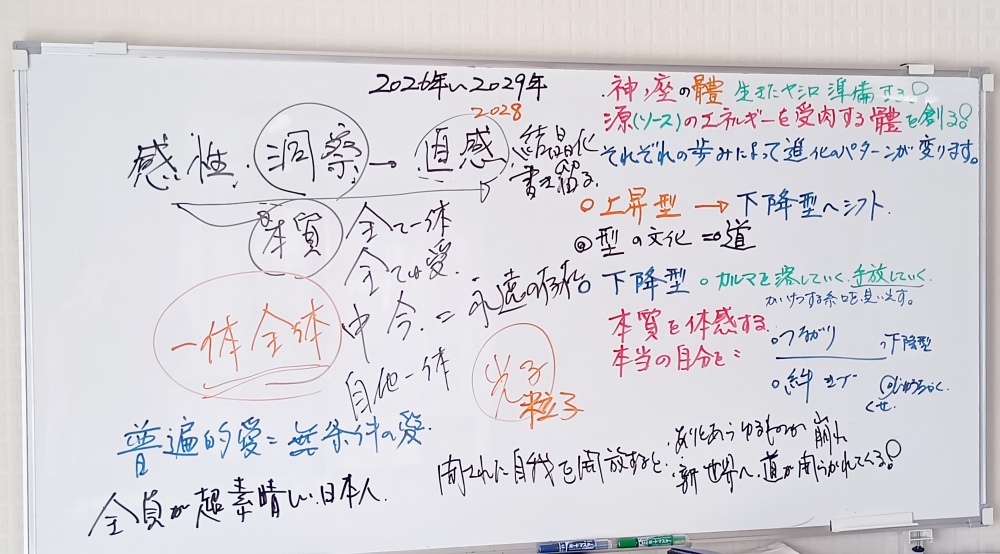 2026年〜2029年
2028
感性・洞察→直感
結晶化
本質
全て一体
全ては愛
中今=永遠の存在
自他一体
一体全体
光子
粒子
普遍的愛=無条件の愛
全員が超素晴しい日本人
神ノ座の體 生きたヤシロ準備する
源(ソース)のエネルギーを受肉する體を創る
それぞれの歩みによって進化のパターンが変ります。
上昇型→下降型へシフト
◎型の文化=道
下降型 ○カルマを溶していく 手放していく
かいけつする糸口を見い出す。
本質を体感する
本当の自分と
つながり
下降型
絆
くせ
自我を開放すると
ありとあらゆるものが崩れ
新世界へ、道が開らかれてくる
ボードマスター
ボードマスター